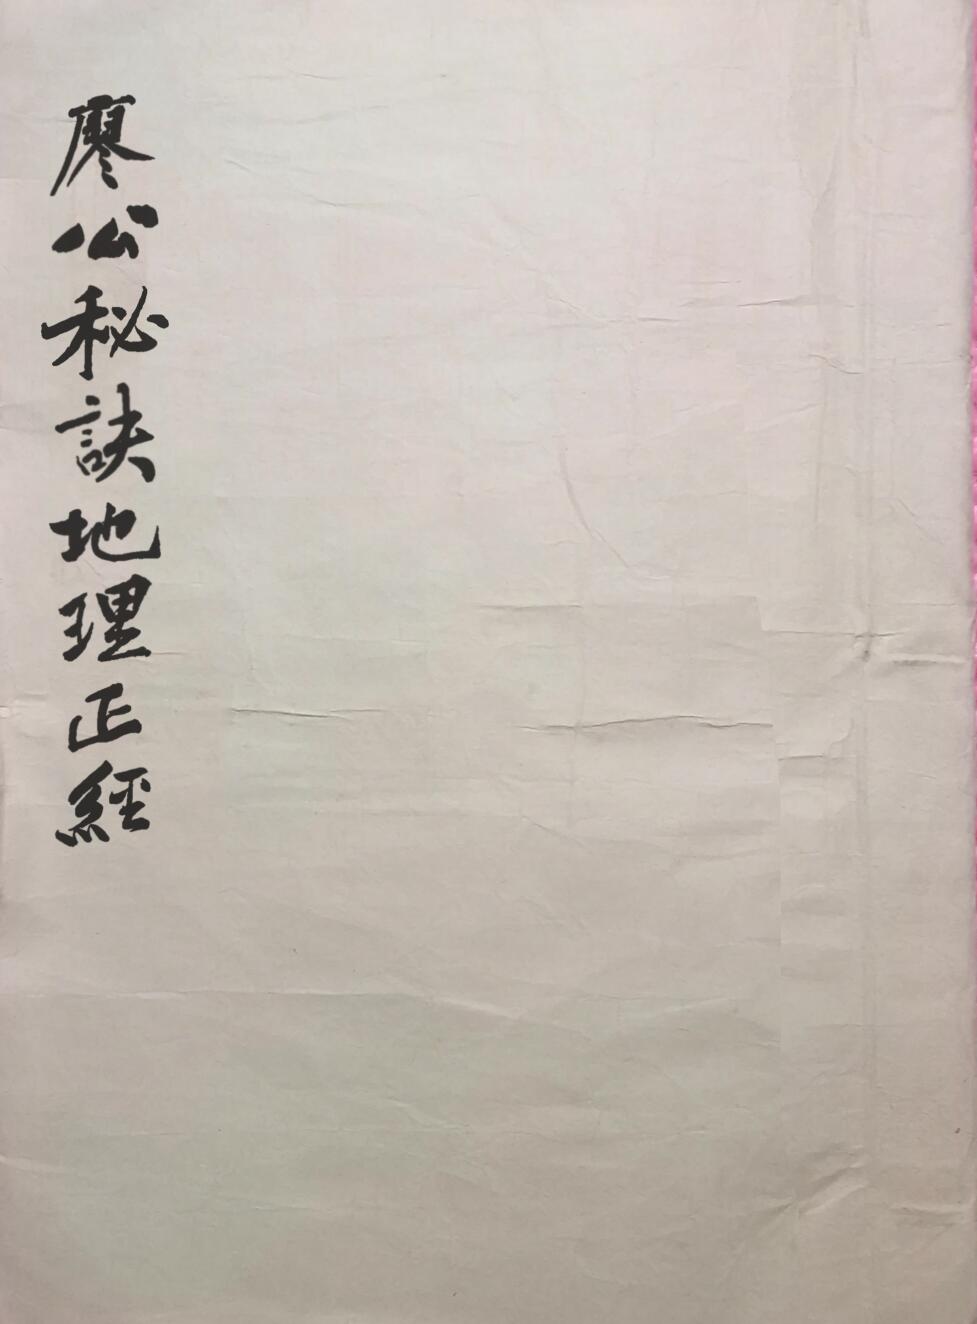 廖公秘訣地理正經